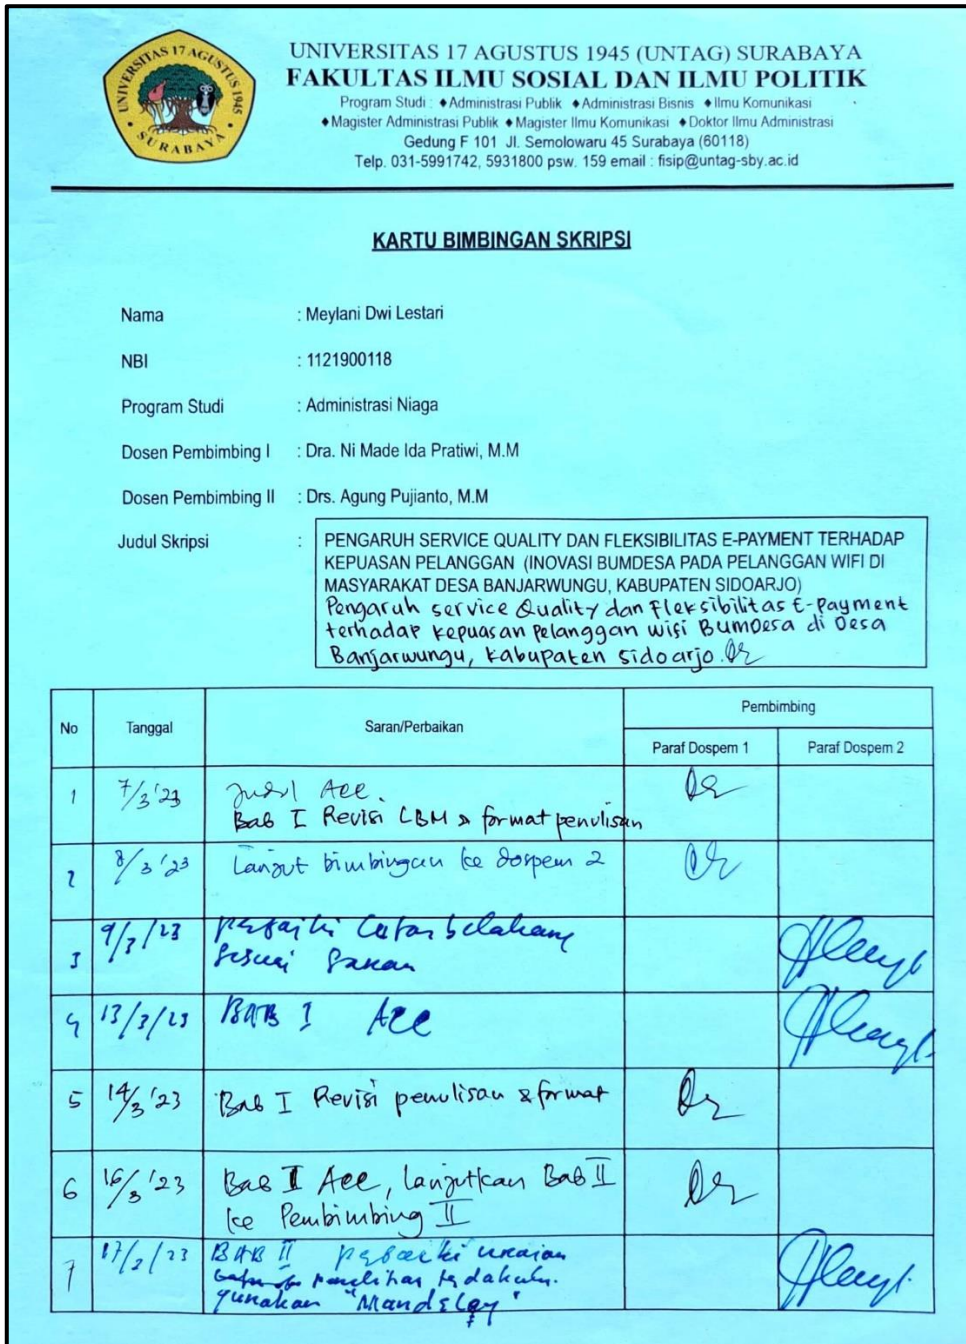 UNIVERSITAS 17 AGUSTUS 1945
SURABAYA
UNIVERSITAS 17 AGUSTUS 1945 (UNTAG) SURABAYA
FAKULTAS ILMU SOSIAL DAN ILMU POLITIK
Program Studi : ♦Administrasi Publik ♦Administrasi Bisnis ♦Ilmu Komunikasi
♦Magister Administrasi Publik ♦Magister Ilmu Komunikasi ♦Doktor Ilmu Administrasi
Gedung F 101 Jl. Semolowaru 45 Surabaya (60118)
Telp. 031-5991742, 5931800 psw. 159 email : fisip@untag-sby.ac.id
KARTU BIMBINGAN SKRIPSI
Nama : Meylani Dwi Lestari
NBI : 1121900118
Program Studi : Administrasi Niaga
Dosen Pembimbing I : Dra. Ni Made Ida Pratiwi, M.M
Dosen Pembimbing II : Drs. Agung Pujianto, M.M
Judul Skripsi : PENGARUH SERVICE QUALITY DAN FLEKSIBILITAS E-PAYMENT TERHADAP
KEPUASAN PELANGGAN (INOVASI BUMDESA PADA PELANGGAN WIFI DI
MASYARAKAT DESA BANJARWUNGU, KABUPATEN SIDOARJO)
Pengaruh service Quality dan Fleksibilitas E-payment
terhadap kepuasan pelanggan wifi BumDesa di Desa
Banjarwungu, kabupaten sidoarjo.
No Tanggal Saran/Perbaikan Pembimbing
Paraf Dospem 1 Paraf Dospem 2
1 7/3'23 Judul Acc.
Bab I Revisi LBM & format penulisan
2 8/3'23 Lanjut bimbingan ke dospem 2
3 9/3/23 perbaiki Latar belakang
sesuai saran
4 13/3/23 BAB I Acc
5 14/3'23 Bab I Revisi penulisan & format
6 16/3'23 Bab I Acc, lanjutkan Bab II
ke Pembimbing II
7 BAB II perbaiki uraian
penelitian
gunakan "Mandeley"